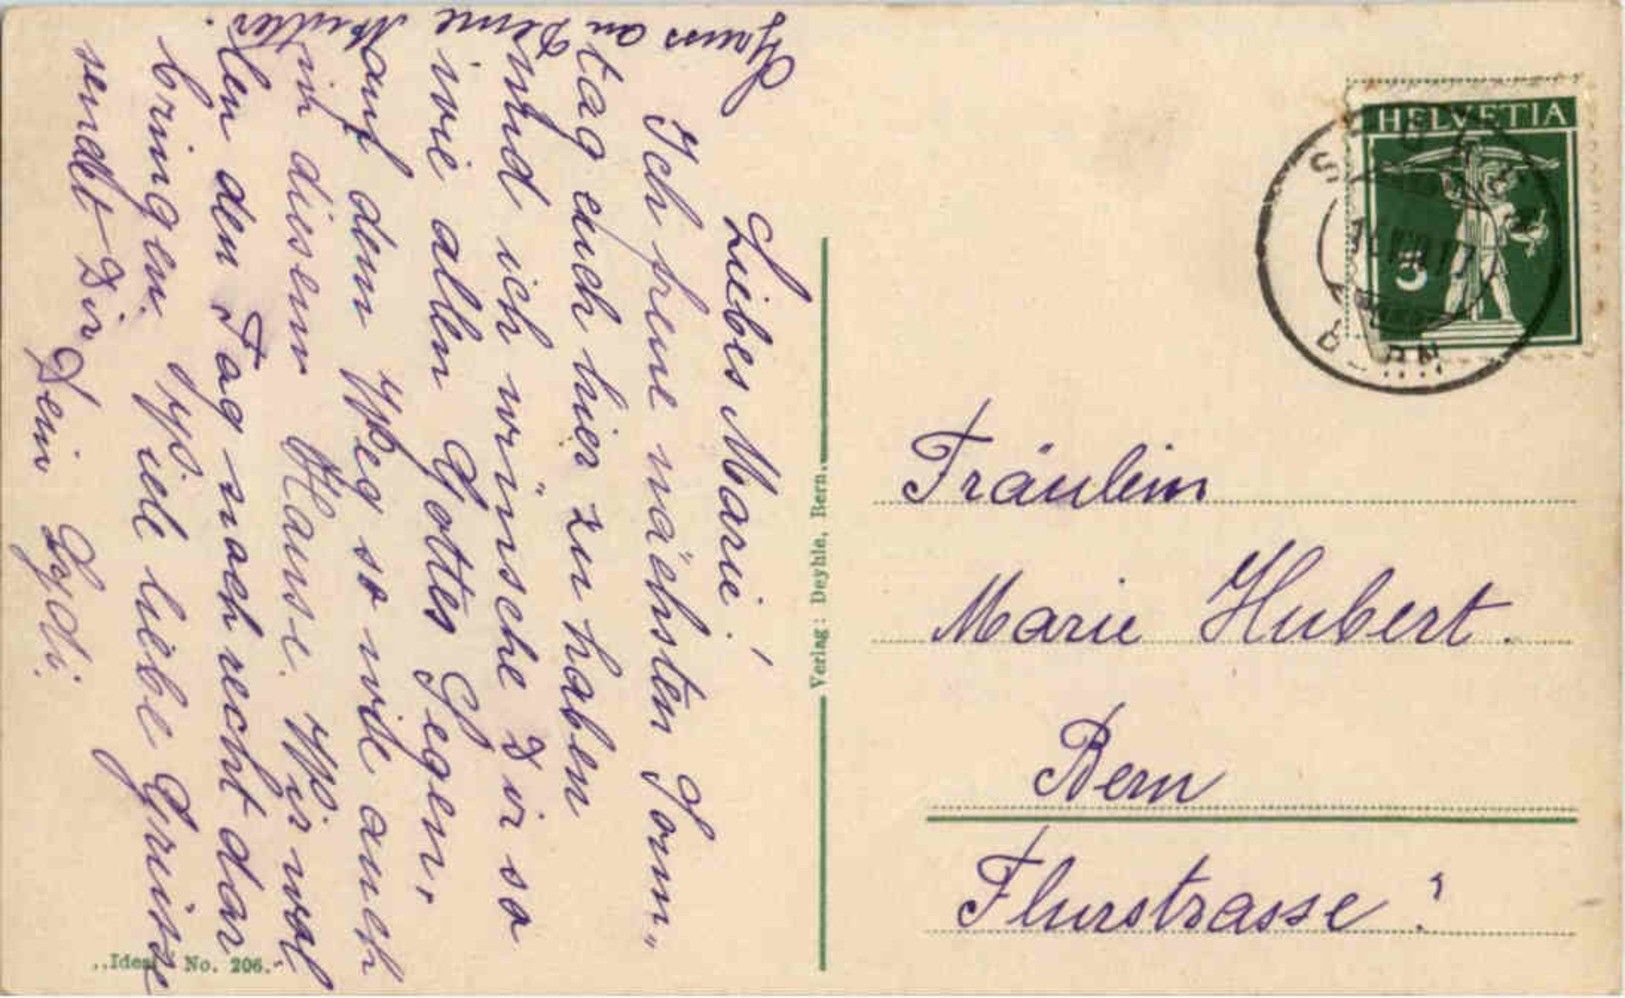 Liebes Marie!
Ich freue nächsten Sonn„
tag euch hier zu haben
und ich wünsche Dir so
wie allen Gottes Segen,
auf dem Weg so wie auch
in disem Hause. Wir wol
len den Tag nach recht dar
bringen. Viele liebe Grüsse
sendet Dir
Dein Lydi.
Gruss an Deine
Mutter.
Verlag: Deyhle, Bern.
„Ideal" No. 206.
HELVETIA
5
BERN
Fräulein
Marie Hubert.
Bern
Flurstrasse